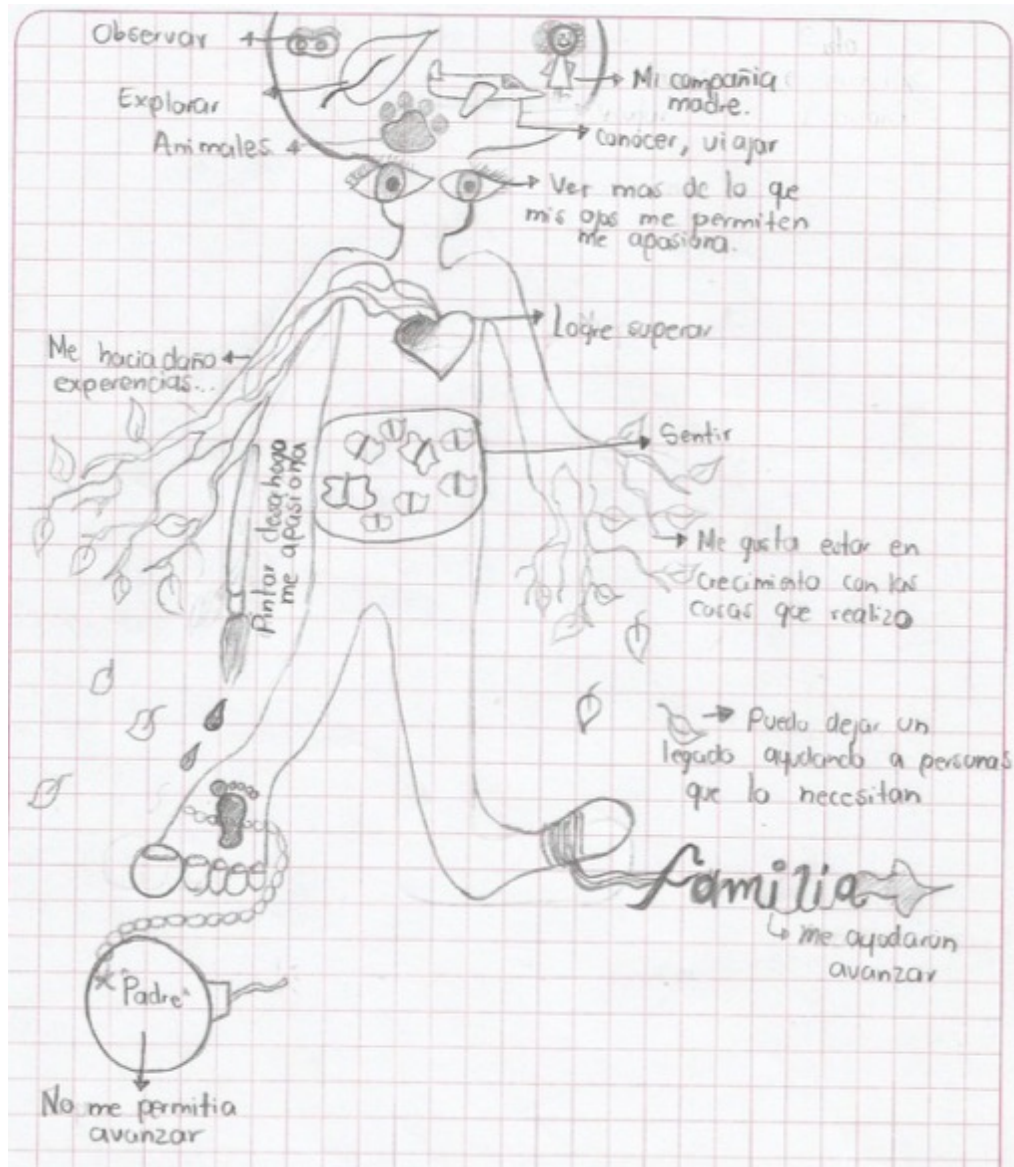 Observar
Explorar
Animales
Mi compañia
madre.
conocer, viajar
Ver mas de lo que
mis ojos me permiten
me apasiona.
Logre superar
Me hacia daño
experencias...
Sentir
Pintar desahogo
me apasiona
Me gusta estar en
crecimiento con las
cosas que realizo
Puedo dejar un
legado ayudando a personas
que lo necesitan
familia
me ayudaron
avanzar
"Padre"
No me permitia
avanzar